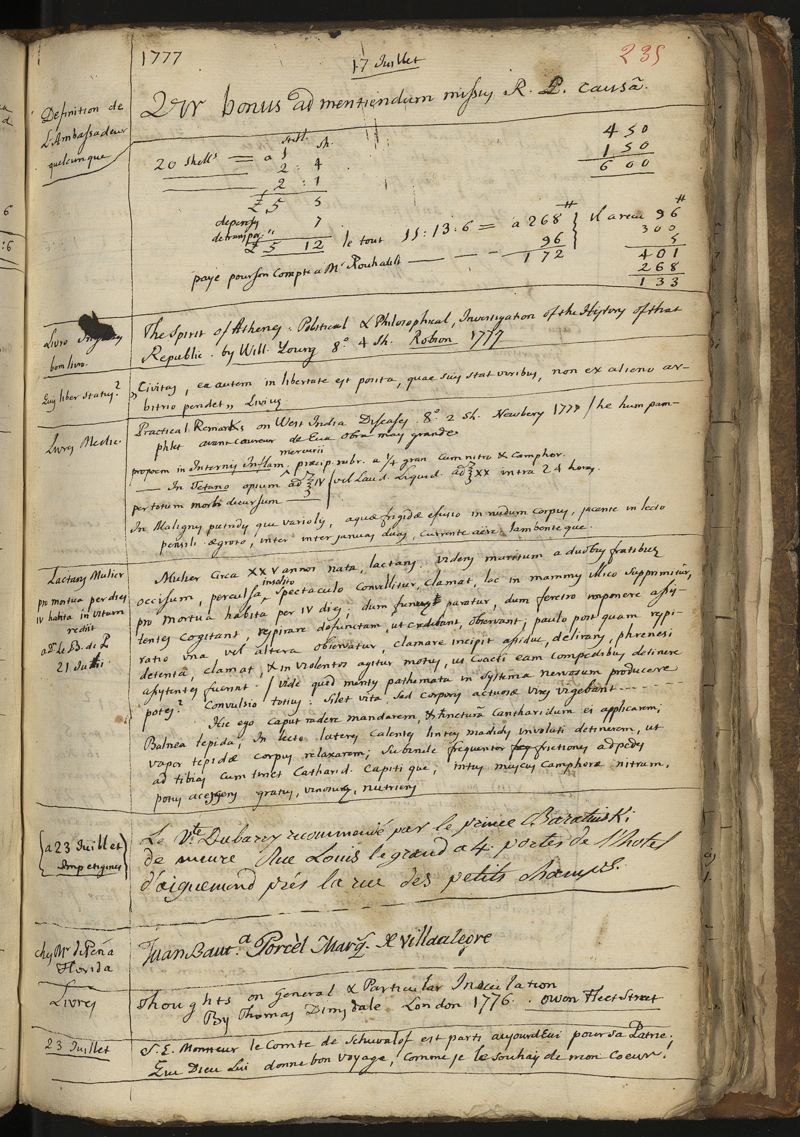 1777
17 Juillet
235
Definition de
L'Ambassadeur
quelconque
Vir bonus ad mentiendum missus R. P. causâ.
Shll. sh.
20 Shells = a 1
2 : 4
2 : 1
£ 5 5
depenses 7
de transpor "
£ 5 12
le tout 11:13:6 = a 268 #
96
172
Il a reçu 96 #
300
5
401
268
133
450
150
600
paye pour son Compte a Mr. Rouhault — — —
Livre Inglez
bom livro.
The Spirit of Athens: Political & Philosophical, Investigation of the History of that
Republic. by Will. Young 8.° 4 sh. Robson 1777
liber status?
" Civitas, ea autem in libertate est posita, quae suis stat viribus, non ex alieno ar-
bitrio pendet " Livius
Livres Medic.
Practical Remarks on West India Diseases. 8.° 2 sh. Newbery 1777 / he hum pam-
phlet avant coureur de Eua obra mais grande
mercurii
propoem in Internis Inflam. praecip. rubr. a 1/4 gran cum nitro & camphor.
— In Tetano opium ad ʒ IV / vel Laud. Liquid. ad ʒ XX intra 24 horas.
per totum morbi decursum — 3
In Malignis putridis que variolis, aquae frigidae efusio in nudum corpus, jacente in lecto
pensili aegroto, inter inter januas duas, currente aëre lambente que.
Lactans Mulier
pro mortua per dies
IV habita in vitam
rediit
a F. de B. de P.
21 Juillt
Mulier circa XXV annos nata, lactans, videns maritum a duobus fratibus
occisum, perculsa insolito spectaculo convellitur, clamat, lac in mammis illico supprimitur,
pro mortua habita per IV dies; dum funus paratur, dum feretro imponere assis-
tentes cogitant, respirare defunctam, ut credebant, observant; paulo post quam respi-
ratio una vel altera observatur, clamare incipit assidue, delirans, phrenesi
detenta, clamat, & in violentos agitur motus, ut coacti eam compedibus detinere
assistentes fuerint. / Vide quid mentis pathemata in systema nervosum producere
potes? Convulsio totius: silet vita, sed corporis actuosae vires vigebant - - - -
Hic ego caput radere mandarem, & tincturâ Cantharidum ei applicarem;
Balnea tepida; In lecto lateres calentes linteis madidis involuti detinerem, ut
vapor tepidae corpus relaxarem; subinde frequenter frictiones ad pedes
ad tibias cum tinct Catharid. Capiti que; intus muscus Camphora nitrum,
potus acescens gratus, vinosus, nutriens
{a 23 Juillet}
Impetigines
Le Vte Dubarry recommendé par le prince Baratinski
demeure Rue Louis le grand a 4 portes de l'hotel
d'aiguemond près la rue des petits champs.
chez Mr. de Peña
Florida
Juan Baut.a Porcèl Marq. de Villaalegre
Livres
Thoughts on General & Particular Inoculation
By Thomas Dimsdale London 1776. Owon Fleet Street
23 Juillet
S. E. Monsieur le Comte de Schuvalof est parti aujourdEui pour sa Patrie;
Que Dieu lui donne bon voyage, comme je le souhais de mon coeur!